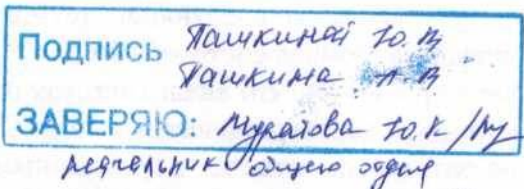 Подпись Пашкиной Ю. В
Пашкина А. В
ЗАВЕРЯЮ: Муратова Ю. К /Му
начальник общего отдела